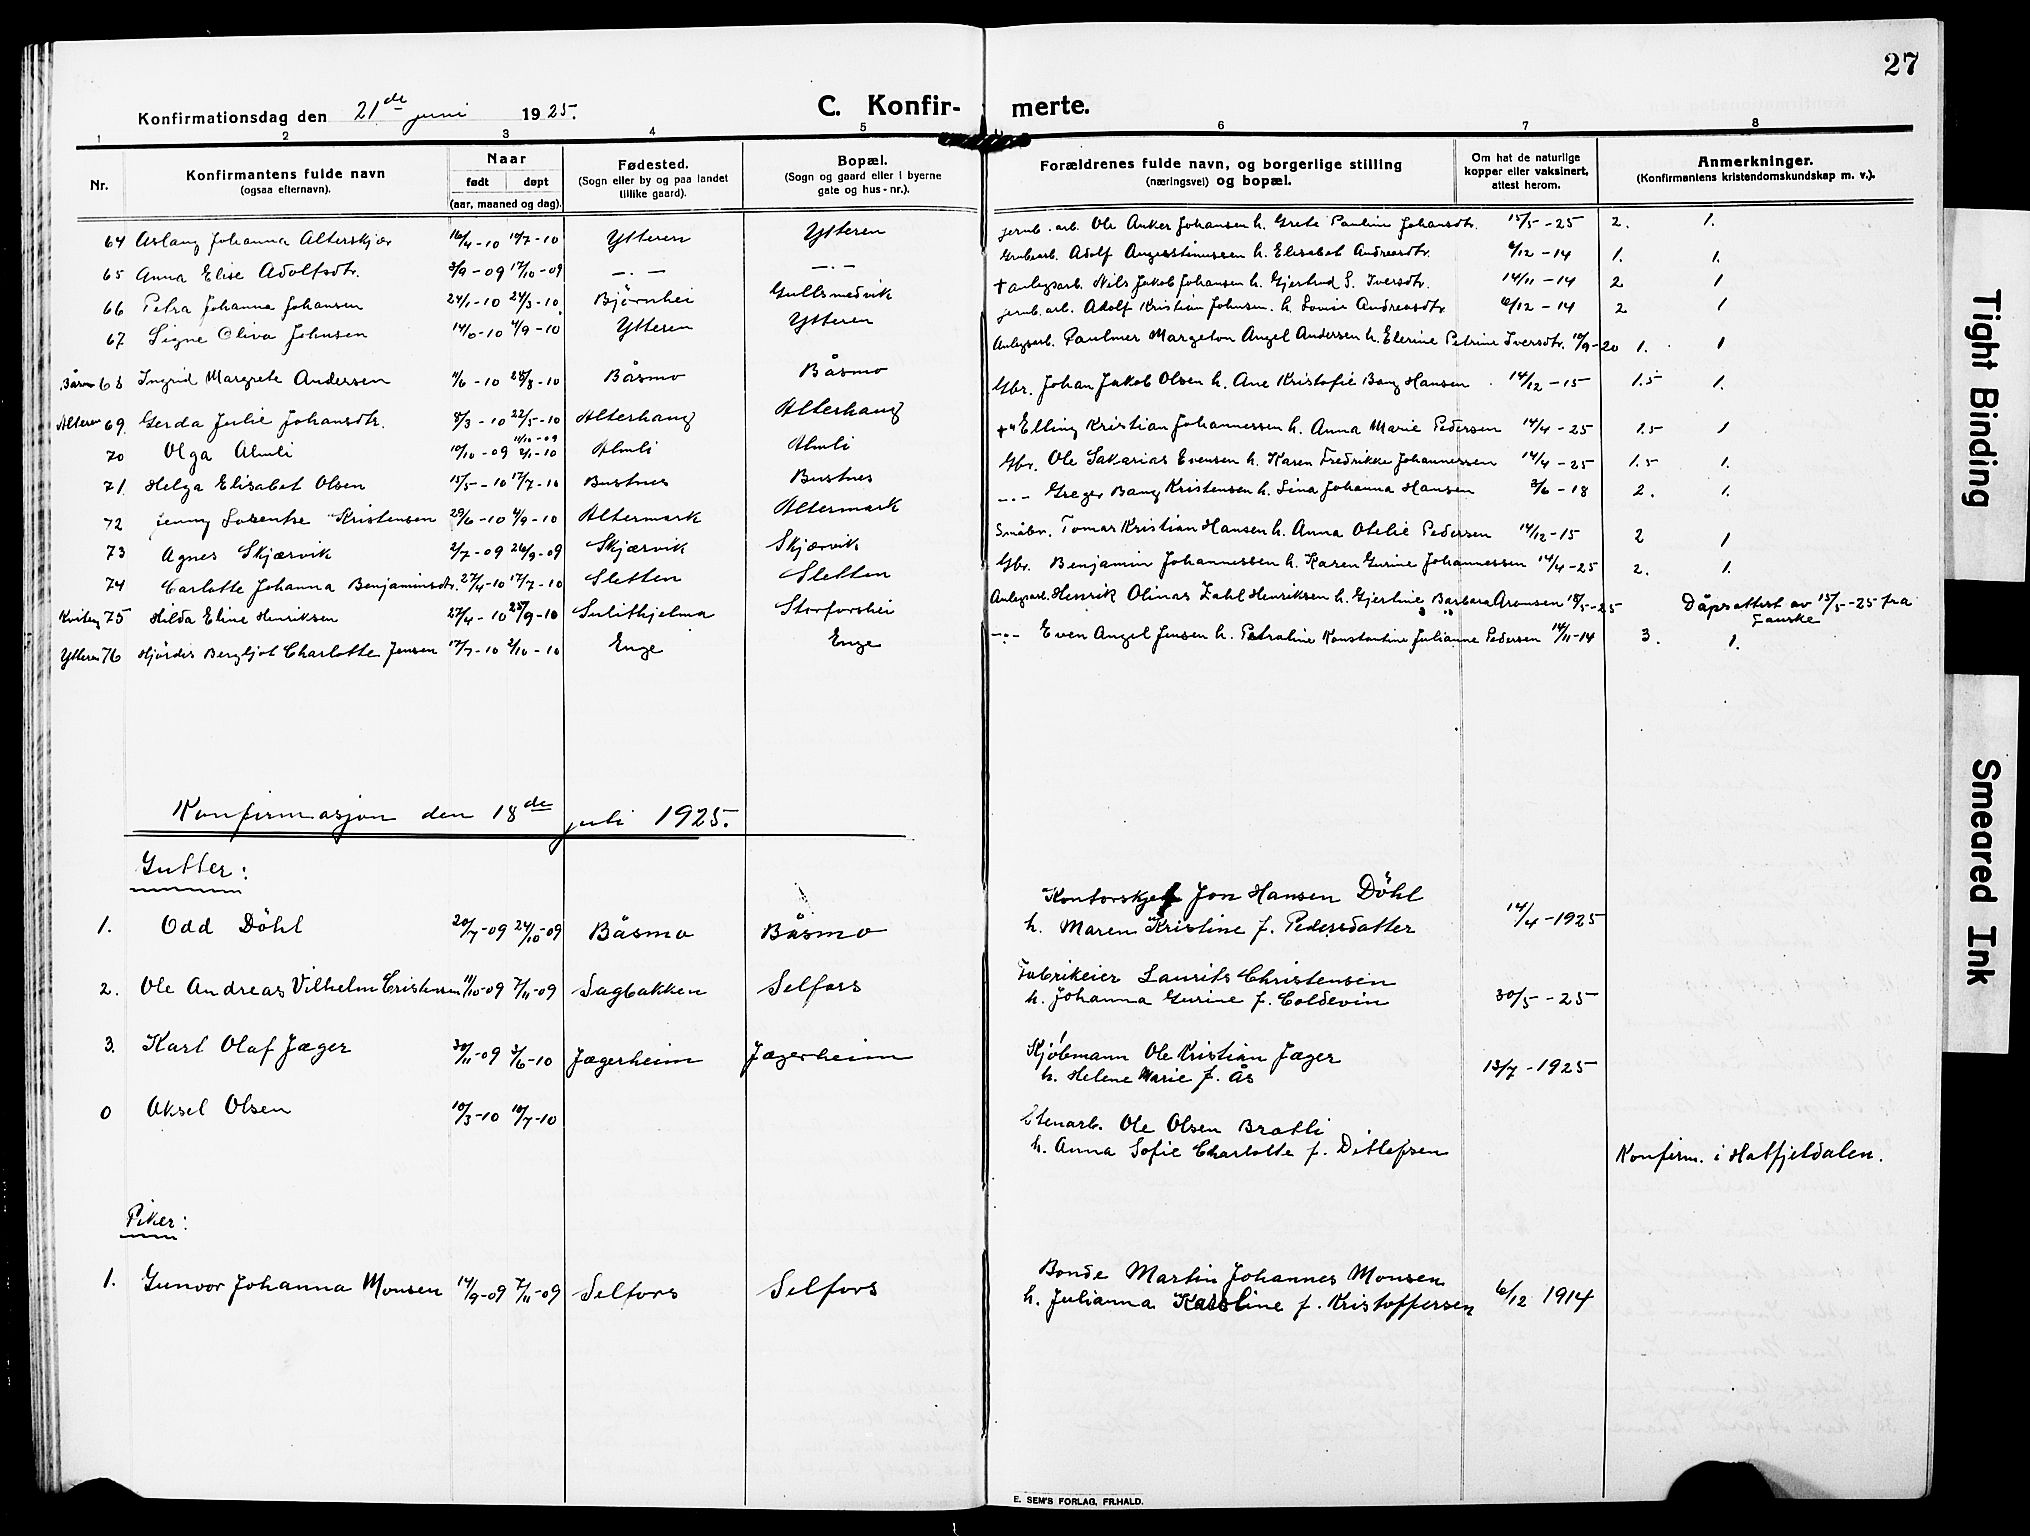 27
Konfirmationsdag den 21de juni 1925.
C. Konfir- merte.
1 2 3 4 5 6 7 8
Nr.
Konfirmantens fulde navn
(ogsaa efternavn).
Naar
født døpt
(aar, maaned og dag).
Fødested.
(Sogn eller by og paa landet
tillike gaard).
Bopæl.
(Sogn og gaard eller i byerne
gate og hus-nr.).
Forældrenes fulde navn, og borgerlige stilling
(næringsvei) og bopæl.
Om hat de naturlige
kopper eller vaksinert,
attest herom.
Anmerkninger.
(Konfirmantens kristendomskundskap m. v.).
64 Aslaug Johanna Alterskjær 16/4-10 10/7-10 Ytteren Ytteren jernb. arb. Ole Anker Johansen h. Grete Pauline Johansdtr. 15/5-25 2. 1.
65 Anna Elise Adolfsdtr. 3/9-09 17/10-09 -.- -.- Grubearb. Adolf Augustinussen h. Elisabet Andreasdtr. 6/12-14 1. 1.
66 Petra Johanna Johansen 24/1-10 24/3-10 Björnhei Gullsmedvik + anlegsarb. Nils Jakob Johansen h. Gjertrud S. Iversdtr. 14/11-14 2 1
67 Signe Oliva Johnsen 14/6-10 4/9-10 Ytteren Ytteren jernb. arb. Adolf Kristian Johnsen. h. Lovise Andreasdtr 6/12-14 2 1
Båsm 68 Ingrid Margrete Andersen 11/6-10 28/8-10 Båsmo Båsmo Anlegsarb. Paulmer Margeton Angel Andersen h. Elerine Petrine Iversdtr. 10/9-20 1. 1
Alteren 69. Gerda Julie Johansdtr. 8/3-10 22/5-10 Alterhaug Alterhaug Gbr. Johan Jakob Olsen h. Ane Kristofie Bang Hansen 14/12-15 1.5 1.
70 Olga Almli 10/10-09 11/10-09 2/1-10 Almli Almli +" Elling Kristian Johannessen h. Anna Marie Pedersen 14/4-25 1.5 1
71. Helga Elisabet Olsen 15/5-10 17/7-10 Bustnes Bustnes Gbr. Ole Sakarias Evensen h. Karen Fredrikke Johannessen 14/4-25 1.5 1.
72 Jenny Lorentse Kristensen 29/6-10 4/9-10 Altermark Altermark -.- Greger Bang Kristensen h. Lina Johanna Hansen 3/6-18 2. 1.
73 Agnes Skjærvik 2/7-09 26/9-09 Skjærvik Skjærvik Småbr. Tomas Kristian Hansen h. Anna Otelie Pedersen 14/12-15 2 1
74 Carlotte Johanna Benjaminsdtr. 27/4-10 17/7-10 Sletten Sletten Gbr. Benjamin Johannessen h. Karen Gurine Johannessen 14/4-25 2. 1.
75 Hilda Eline Henriksen 27/4-10 25/9-10 Sulithjelma Storforshei Anlegsarb. Henrik Olinas Zahl Henriksen h. Gjertine Barbara Aronsen 15/5-25 Dåpsattest av 15/5-25 fra
Fauske
Ytteren 76 Hjördis Bergljot Charlotte Jensen 17/7-10 2/10-10 Enge Enge -.- Even Angel Jensen h. Petraline Konstantine Julianne Pedersen 14/11-14 3. 1.
Konfirmasjon den 18de juli 1925.
Gutter:
1. Odd Döhl 20/7-09 24/10-09 Båsmo Båsmo Kontorskjef Jon Hansen Döhl
h. Maren Kristine f. Pedersdatter 14/4-1925
2. Ole Andreas Vilhelm Cristensen 11/10-09 7/11-09 Sagbakken Selfors Fabrikeier Laurits Christensen
h. Johanna Gurine f. Coldevin 30/5-25
3. Karl Olaf Jæger 30/11-09 3/6-10 Jægerheim Jægerheim Kjøbmann Ole Kristian Jæger
h. Helene Marie f. Ås 13/7-1925
0 Aksel Olsen 10/3-10 10/7-10 Stenarb. Ole Olsen Bratli
h. Anna Sofie Charlotte f. Ditlefsen Konfirm. i Hatfjeldalen.
Piker:
1. Gunvor Johanna Monsen 14/9-09 7/11-09 Selfors Selfors Bonde Martin Johannes Monsen
h. Julianna Karoline f. Kristoffersen 6/12 1914
E. SEM'S FORLAG, FR.HALD.
Tight Binding
Smeared Ink